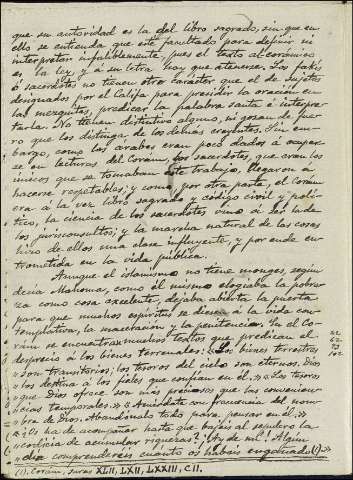 que su autoridad es la del libro sagrado, sin que en
ello se entienda que esté facultado para definir ni
interpretar infaliblemente, pues el texto alcoránico
es la ley, y a su letra hay que atenerse. Los fakís
ó sacerdotes no tienen otro carácter que el de sujetos
designados por el Califa para presidir la oración en
las mezquitas, predicar la palabra santa é interpre-
tarla. No tienen distintivo alguno, ni gozan de fue-
ro que los distinga de los demás creyentes. Sin em-
bargo, como los árabes eran poco dados á ocupar-
se en lecturas del Corán, los sacerdotes, que eran los
únicos que se tomaban este trabajo, llegaron a
hacerse respetables; y como, por otra parte, el Corán
era á la vez libro sagrado y código civil y polí-
tico, la ciencia de los sacerdotes vino á ser la de
los jurisconsultos; y la marcha natural de las cosas
hizo de ellos una clase influyente, y por ende en-
trometida en la vida pública.
Aunque el islamismo no tiene monges, según
decía Mahoma, como él mismo elogiaba la pobre-
za como cosa excelente, dejaba abierta la puerta
para que muchos espíritus se diesen á la vida con-
templativa, la maceración y la penitencia. En el Co-
rán se encuentran muchos textos que predican el
desprecio á los bienes terrenales: «Los bienes terrestres
» son transitorios; los tesoros del cielo son eternos. Dios
» los destina á los fieles que confían en él.» «Los tesoros
que Dios ofrece son más preciosos que las convenien-
cias temporales.» «Acuérdate con frecuencia del nom-
bre de Dios. Abandónalo todo para pensar en él.»
«¿Os ha de acompañar hasta que bajéis al sepulcro la
codicia de acumular riquezas? ¡Ay de mí! Algún
» día comprenderéis cuánto os habéis engañado (1).»
22
62
73
102
(1), Corán, Suras XLII, LXII, LXXIII, CII.